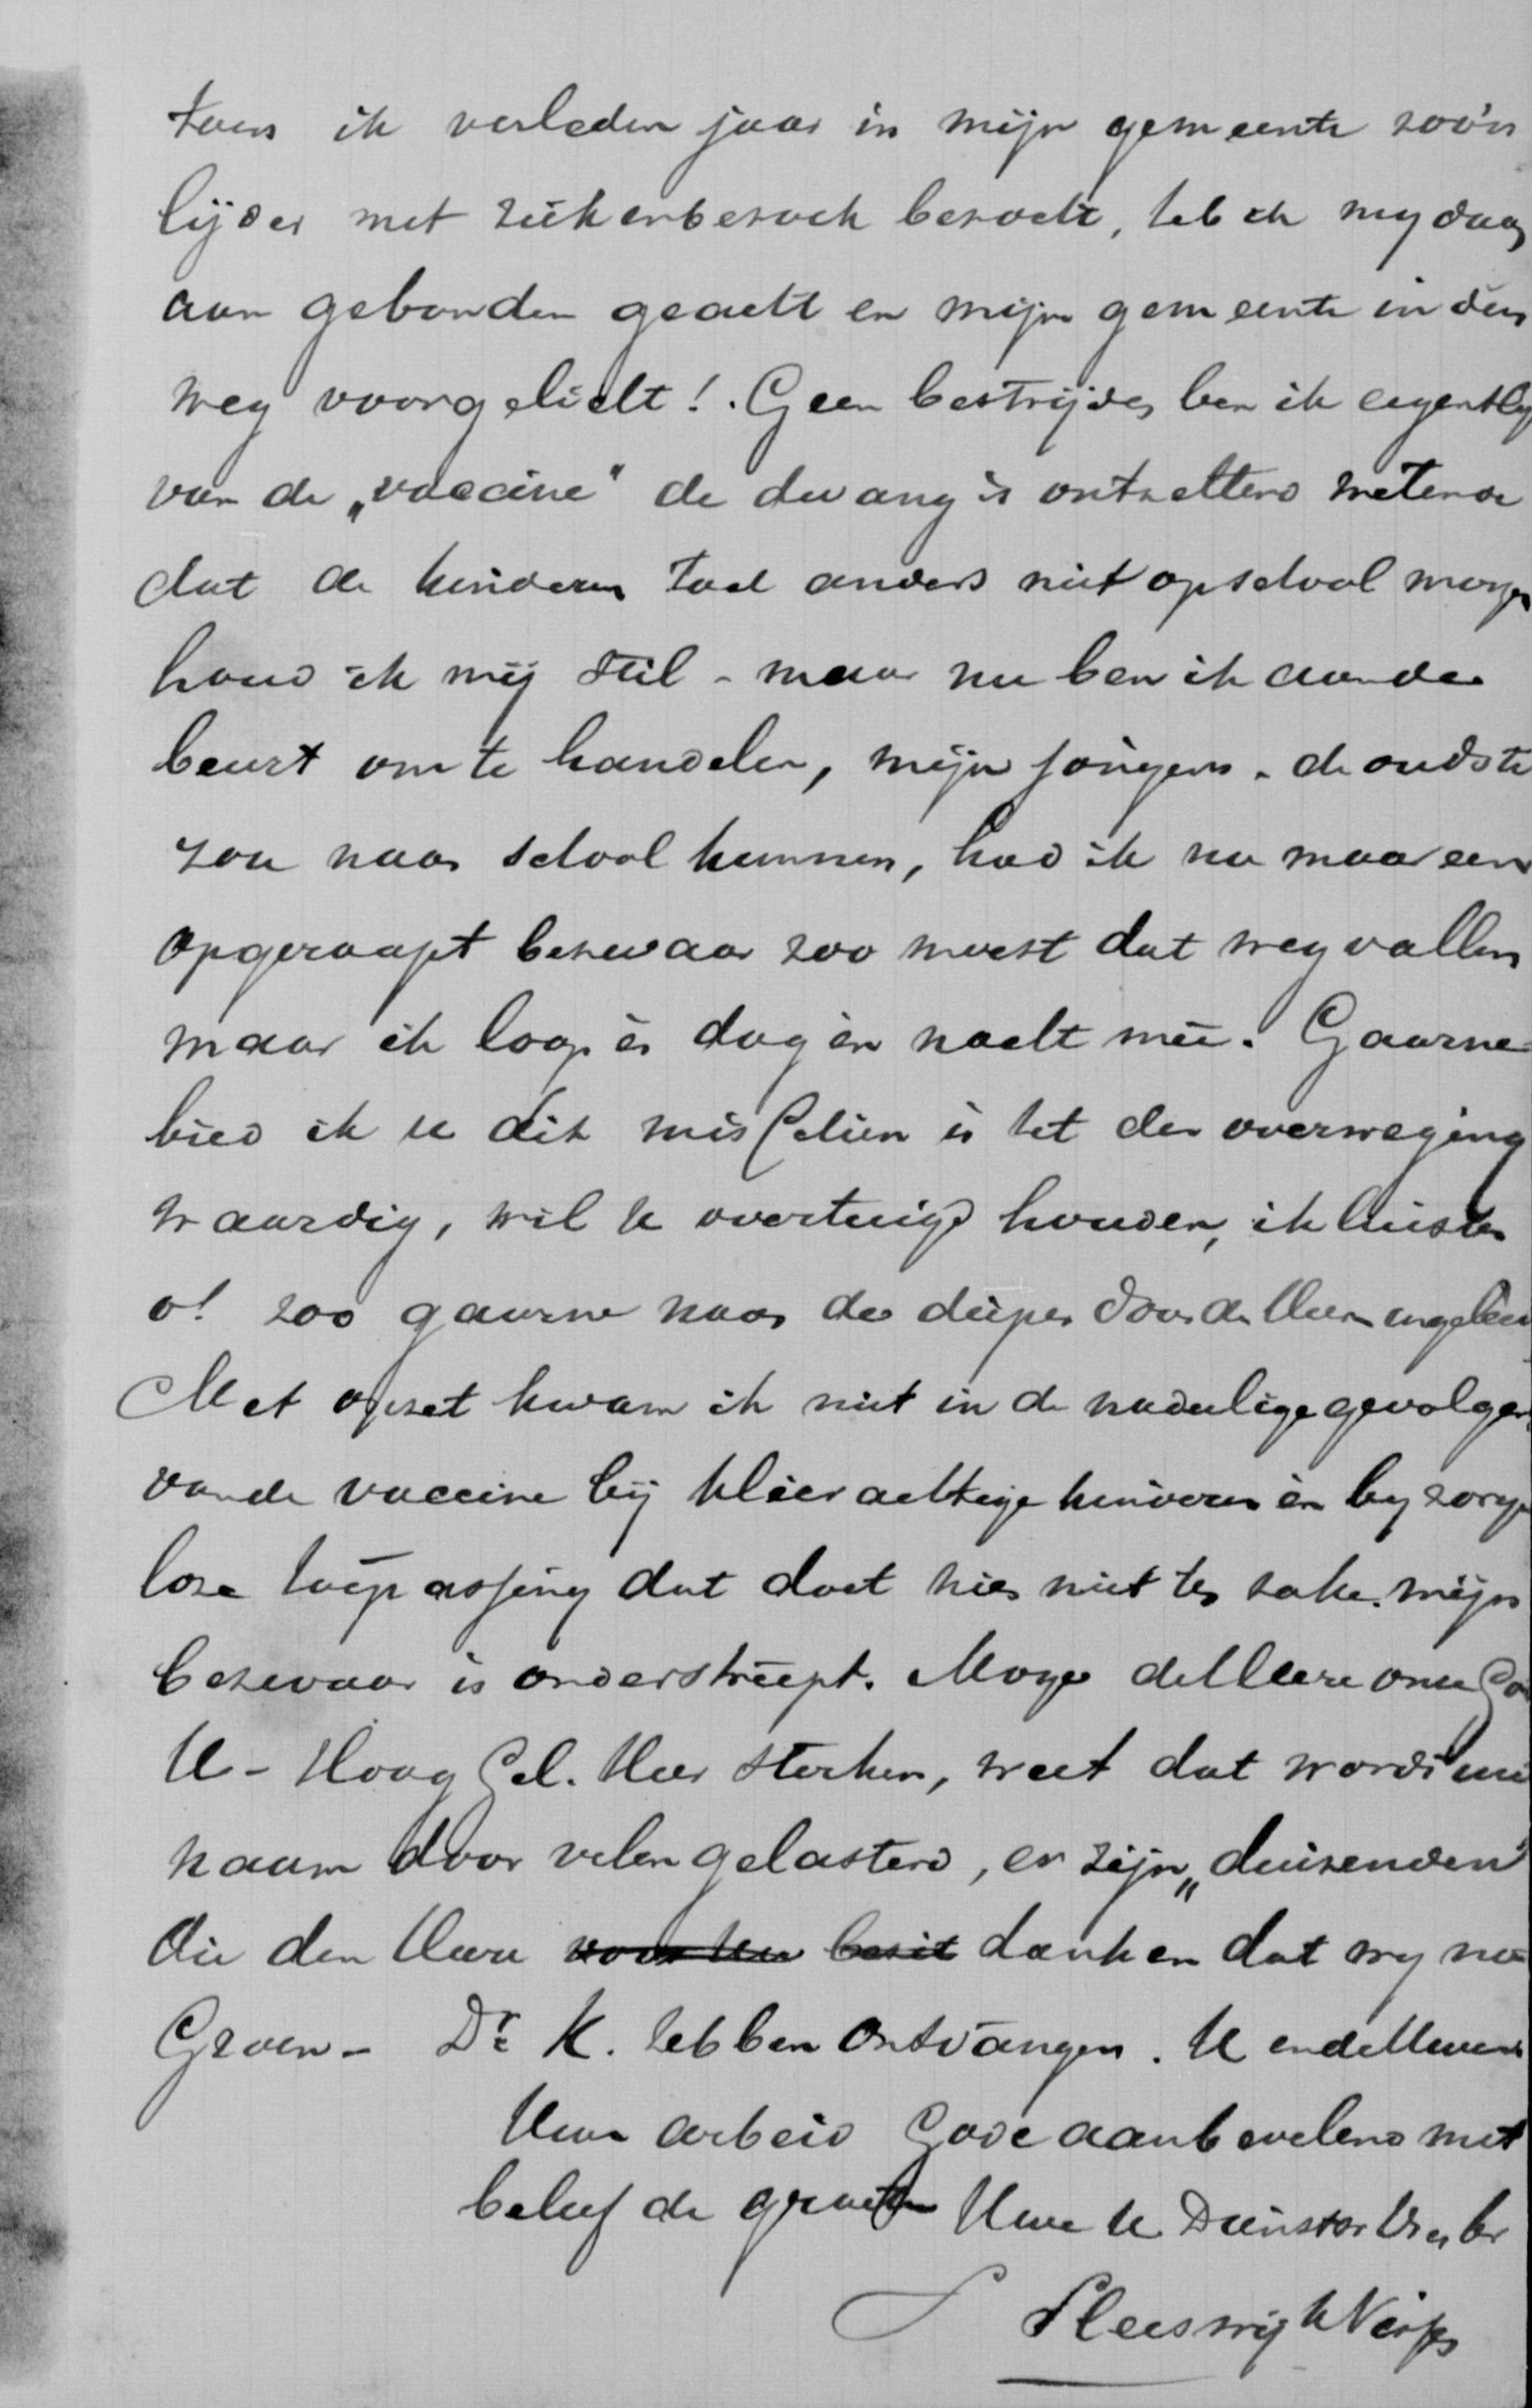 toen ik verleden jaar in mijn gemeente zoo'n
lijder met ziekenbezoek bezocht, heb ik my daar
aan gebonden geacht en mijn gemeente in dien
weg voorgelicht! Geen bestrijder ben ik eigentlyk
van de „vaccine" de dwang is ontzettend wetende
dat de kinderen toch anders niet op school mogen
houd ik mij stil - maar nu ben ik aan de
beurt om te handelen, mijn jongens - de oudste
zou naar school kunnen, had ik nu maar een
opgeraapt bezwaar zoo moest dat wegvallen
maar ik loop er dag en nacht meê. Gaarne
bied ik u dit misschien is het der overweging
waardig, wil u overtuigd houden, ik luister
o! zoo gaarne naar de dieper door de Heere ingeleid
Met opzet kwam ik niet in de nadeelige gevolgen
van de vaccine bij klierachtige kinderen en by zorge
loze toepassing dat doet hier niet ter zake. mijn
bezwaar is onderstreept. Moge de Heere onze God
U - Hoog Gel. Heer sterken, weet dat wordt uw
naam door velen gelasterd, er zijn „duizenden"
die den Heere voor Uw bezit danken dat wy na
Groen - Dr K. hebben ontvangen. U en de Uwen
Uwen arbeid Gode aanbevelend met
beleefde groeten Uwe U Dienstw Dr en br
S Sleeswijk Visser